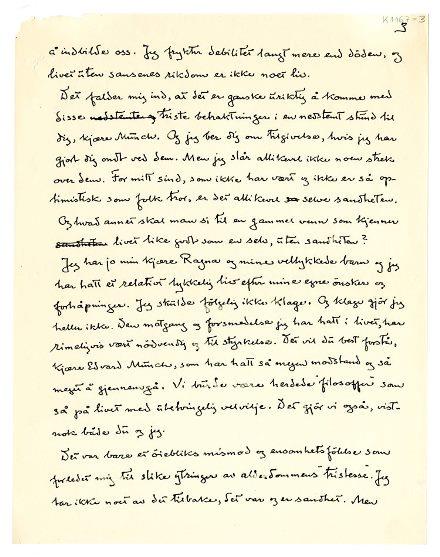 K 1167-3
3
å indbilde oss. Jeg frykter debilitet langt mere end döden, og
livet uten sansenes rikdom er ikke noet liv.
Det falder mig ind, at det er ganske uriktig å komme med
disse nedstemte og triste betraktninger i en nedstemt stund til
dig, kjære Munch. Og jeg ber dig om tilgivelse, hvis jeg har
gjort dig ondt ved dem. Men jeg slår allikevel ikke noen strek
over dem. For mitt sind, som ikke har vært og ikke er så op-
timistisk som folk tror, er det allikevel selve sandheten.
Og hvad annet skal man si til en gammel venn som kjenner
livet like godt som en selv, uten sandheten?
Jeg har jo min kjære Ragna og mine vellykkede barn og jeg
har hatt et relativt lykkelig liv efter mine egne önsker og
forhåpninger. Jeg skulde fölgelig ikke klage. Og klage gjör jeg
heller ikke. Den motgang og forsmedelse jeg har hatt i livet, har
rimeligvis vært nödvendig og til styrkelse. Det vil du best forstå,
kjære Edvard Munch, som har hatt så megen motstand og så
meget å gjennemgå. Vi burde være herdede "filosoffer" som
så på livet med ubetvingelig velvilje. Det gjör vi også, vist-
nok både du og jeg.
Det var bare et öiebliks mismod og ensomhetsfölelse som
forledet mig til slike ytringer av alderdommens "tristesse". Jeg
tar ikke noet av det tilbake, det var og er sandhet. Men